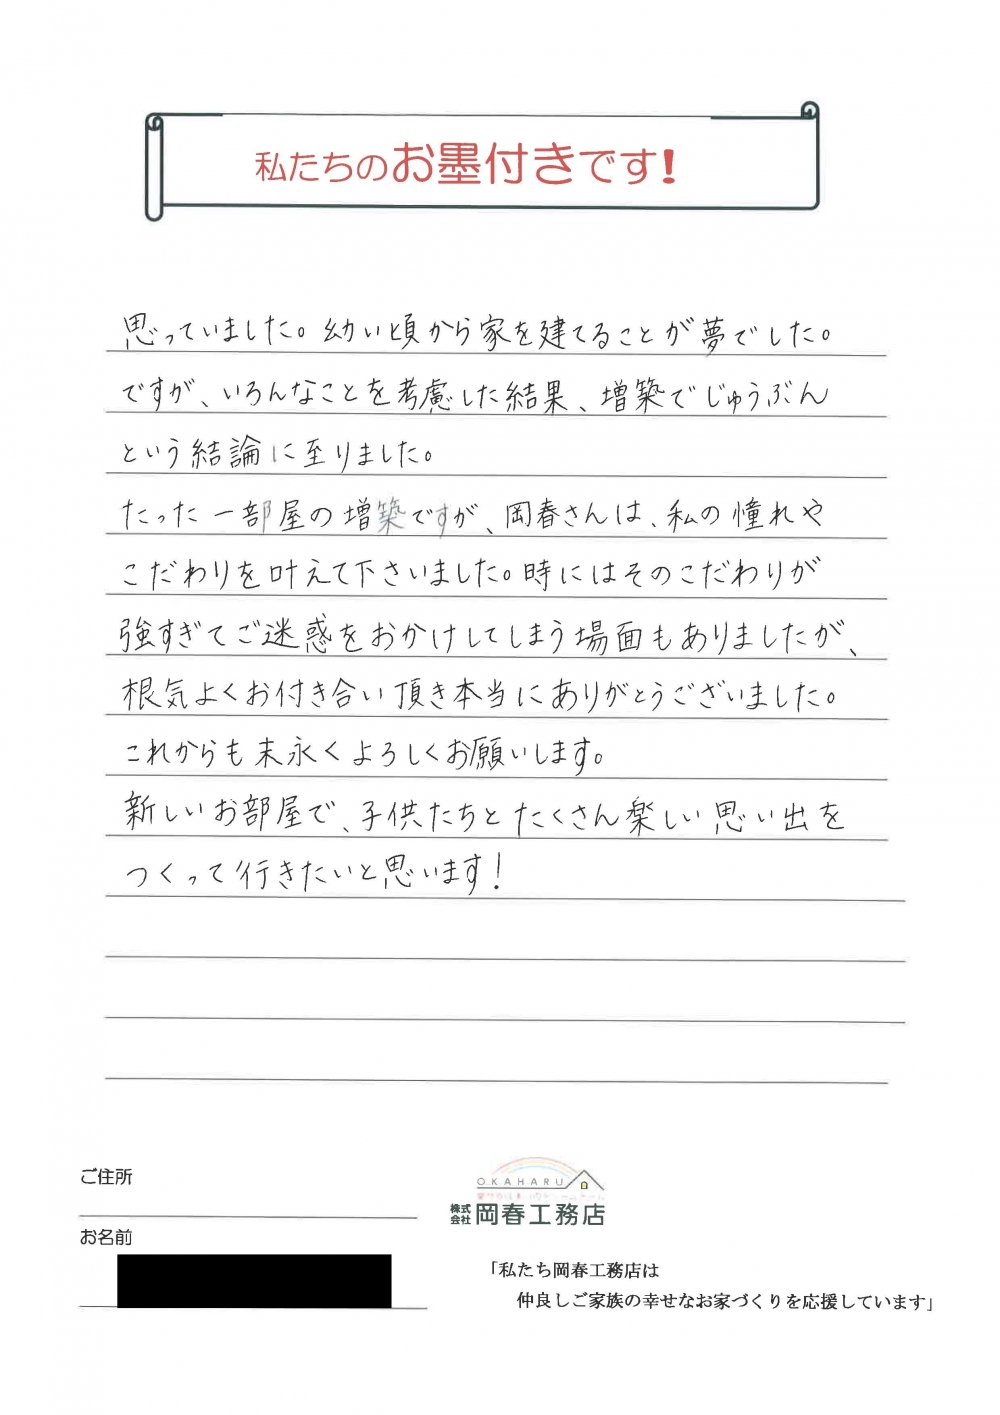 私たちのお墨付きです!
思っていました。幼い頃から家を建てることが夢でした。
ですが、いろんなことを考慮した結果、増築でじゅうぶん
という結論に至りました。
たった一部屋の増築ですが、岡春さんは、私の憧れや
こだわりを叶えて下さいました。時にはそのこだわりが
強すぎてご迷惑をおかけしてしまう場面もありましたが、
根気よくお付き合い頂き本当にありがとうございました。
これからも末永くよろしくお願いします。
新しいお部屋で、子供たちとたくさん楽しい思い出を
つくって行きたいと思います!
ご住所
お名前
OKAHARU
株式会社 岡春工務店
「私たち岡春工務店は
仲良しご家族の幸せなお家づくりを応援しています」